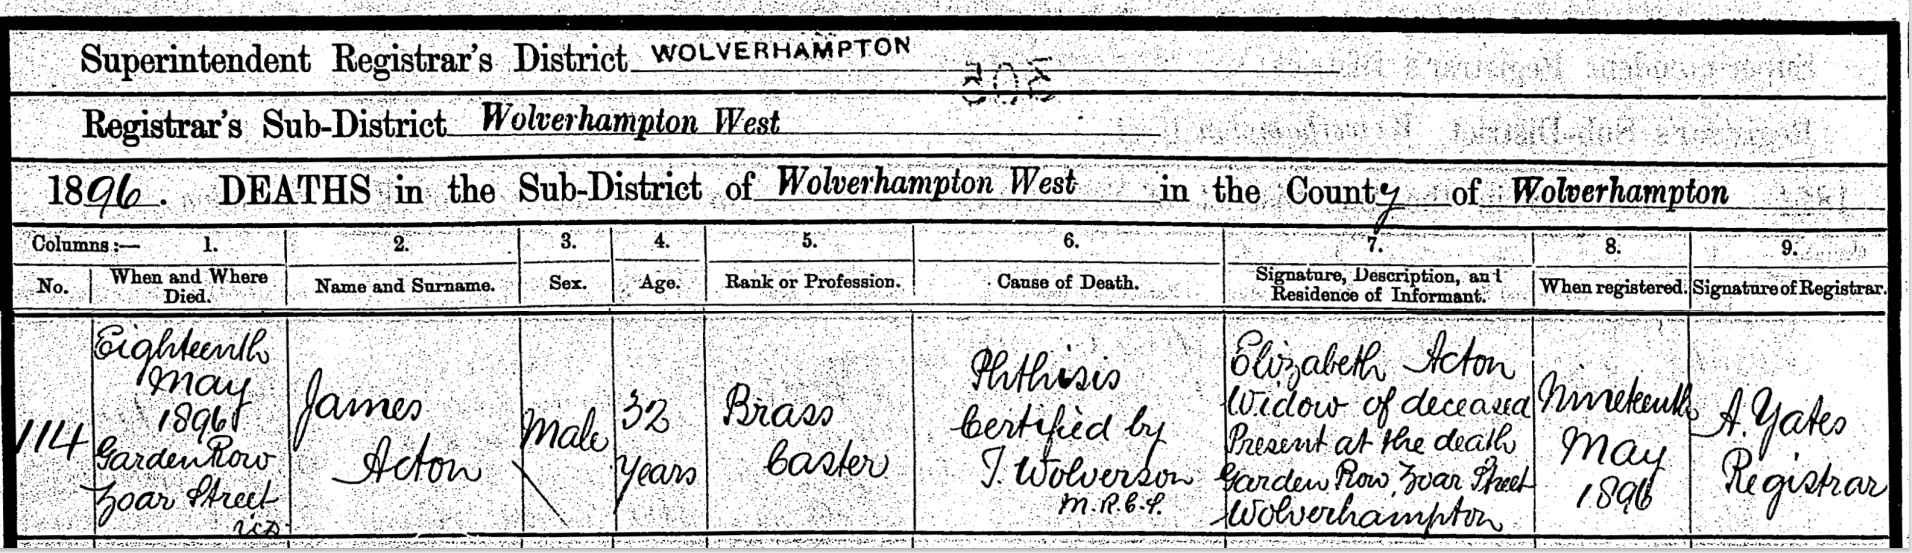 Superintendent Registrar's District WOLVERHAMPTON
Registrar's Sub-District Wolverhampton West
1896. DEATHS in the Sub-District of Wolverhampton West in the County of Wolverhampton
Columns:— 1. 2. 3. 4. 5. 6. 7. 8. 9.
No. When and Where Died. Name and Surname. Sex. Age. Rank or Profession. Cause of Death. Signature, Description, and Residence of Informant. When registered. Signature of Registrar.
114
Eighteenth
May
1896
Garden Row
Zoar Street
James
Acton
Male
32
years
Brass
Caster
Phthisis
Certified by
T. Wolverson
M.R.C.S.
Elizabeth Acton
Widow of deceased
Present at the death
Garden Row, Zoar Street
Wolverhampton
Nineteenth
May
1896
A. Yates
Registrar